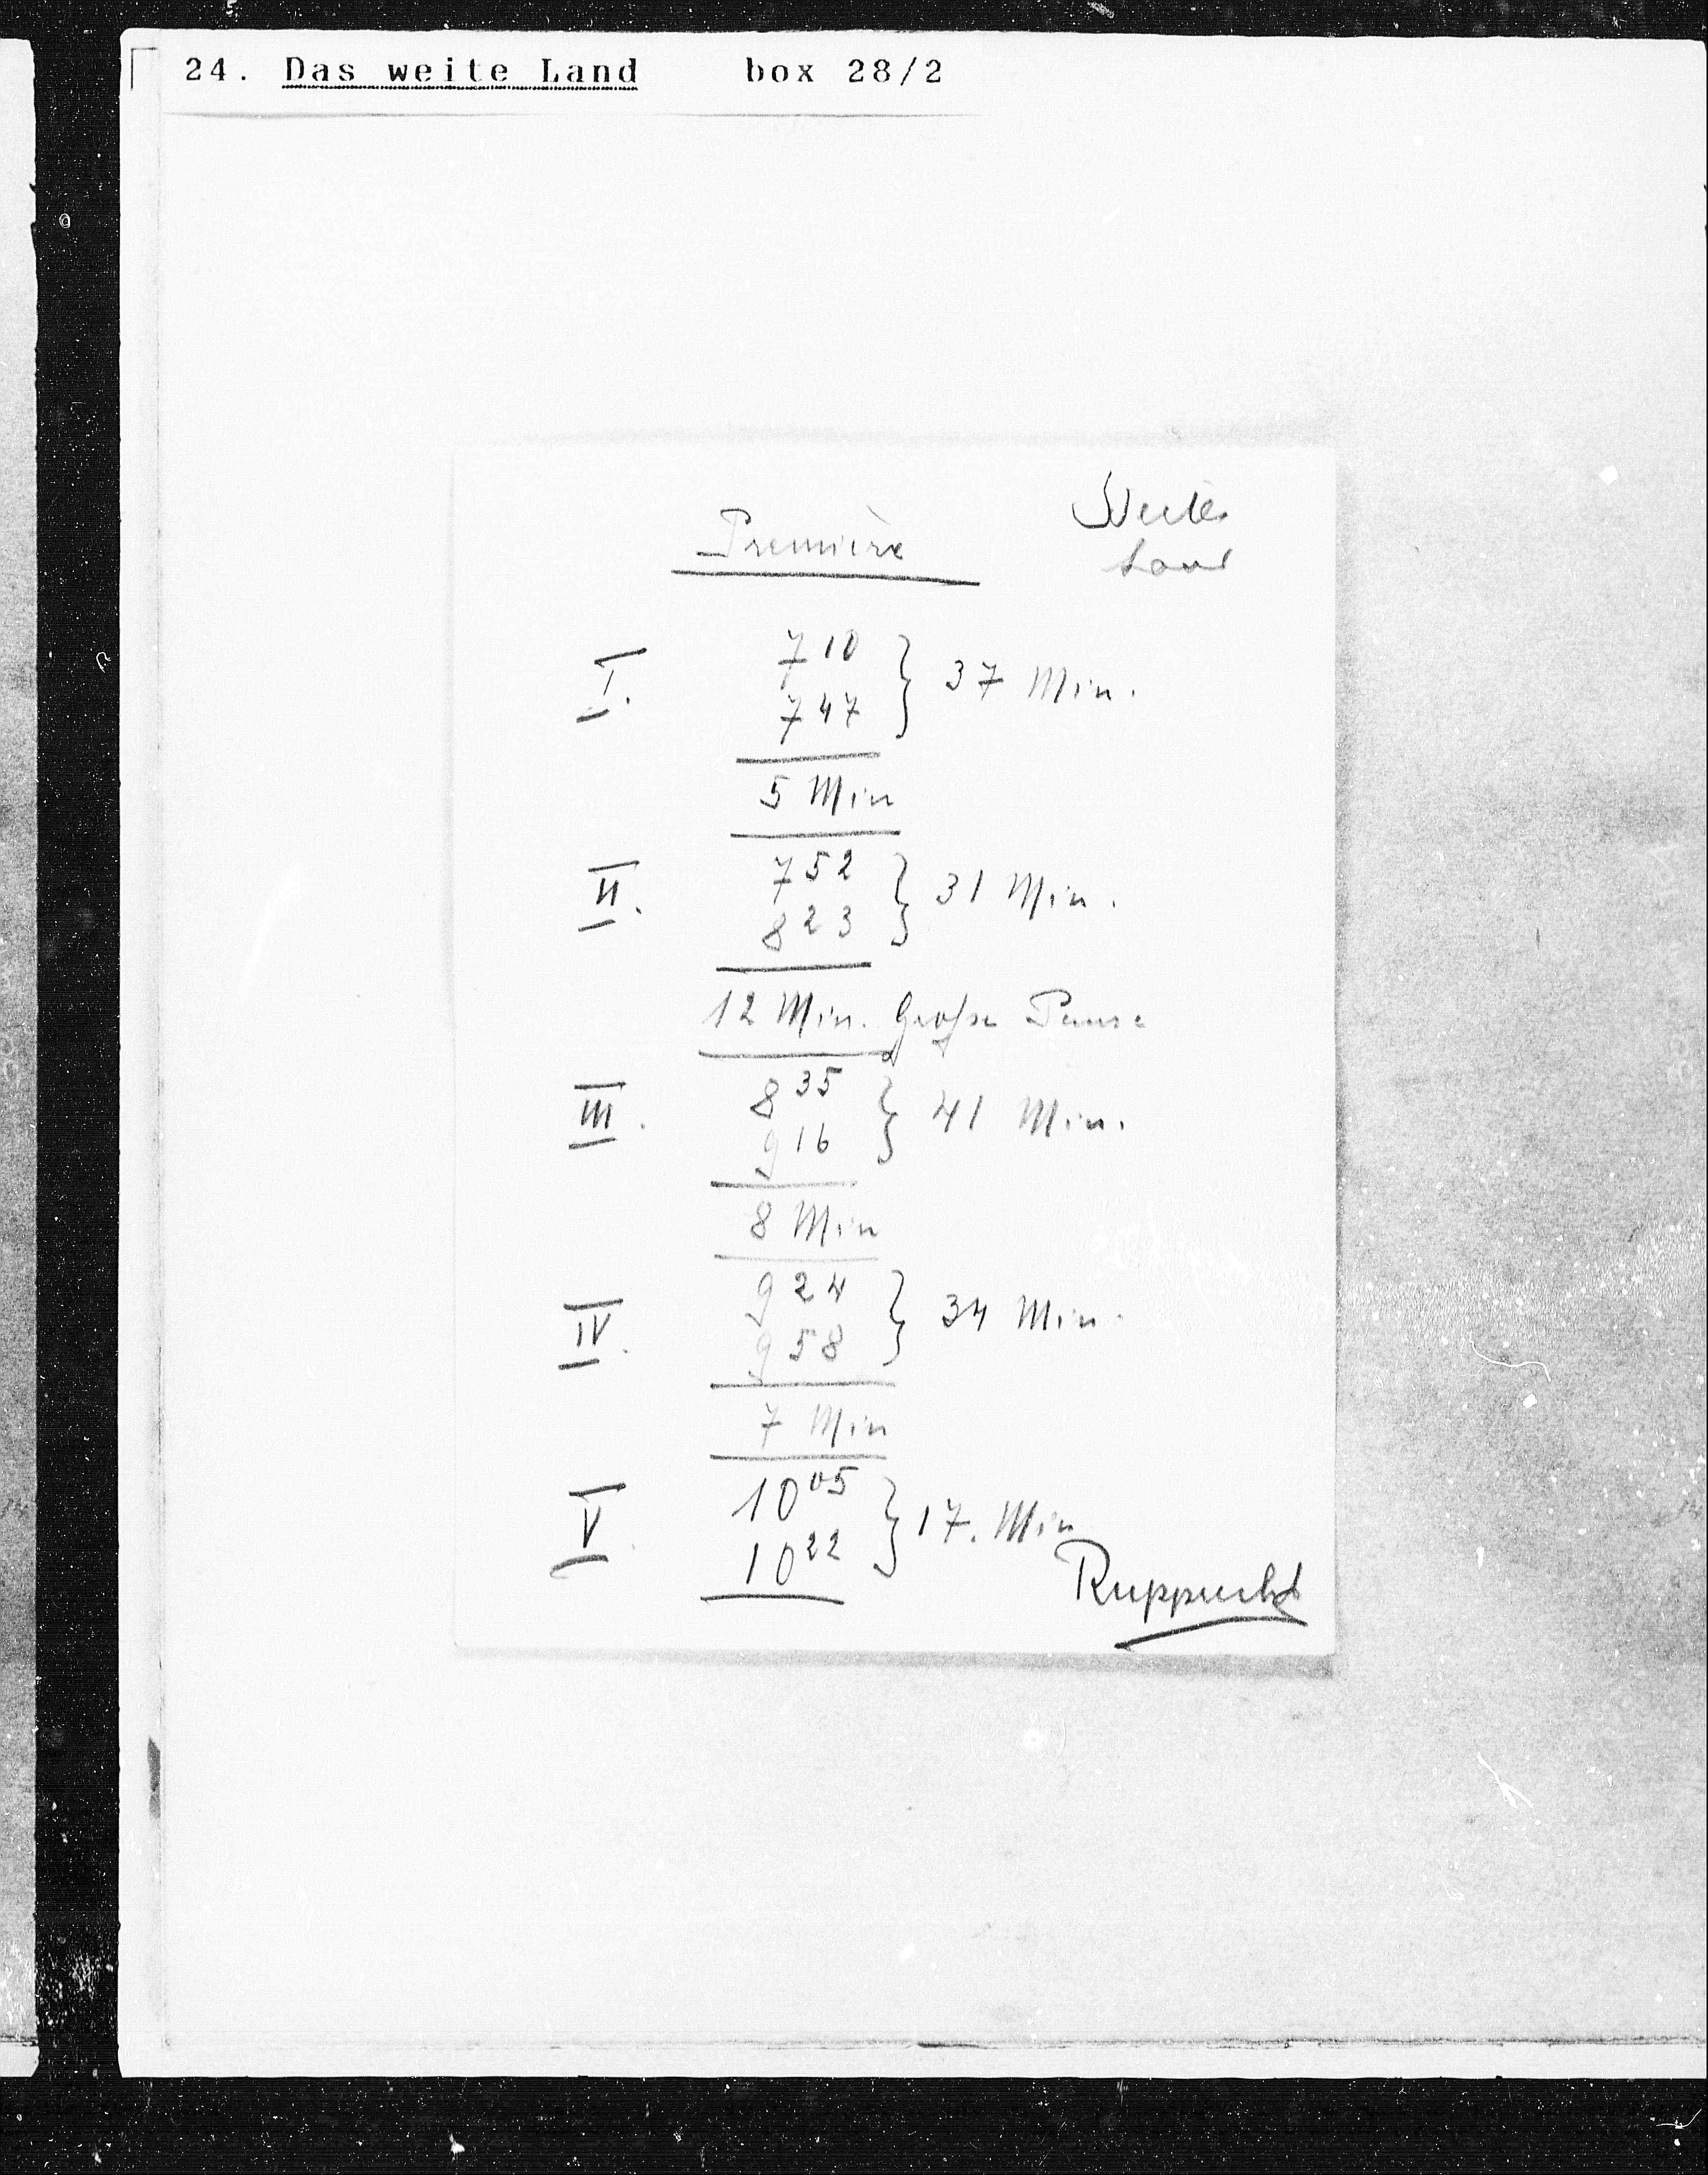 24. Das weite Land box 28/2
Weites
Land
Première
I. 7 10 } 37 Min.
7 47
5 Min
II. 7 52 } 31 Min.
8 23
12 Min. Große Pause
III. 8 35 } 41 Min.
9 16
8 Min
IV. 9 24 } 34 Min.
9 58
7 Min
V. 10 05 } 17. Min
10 22
Rupprecht